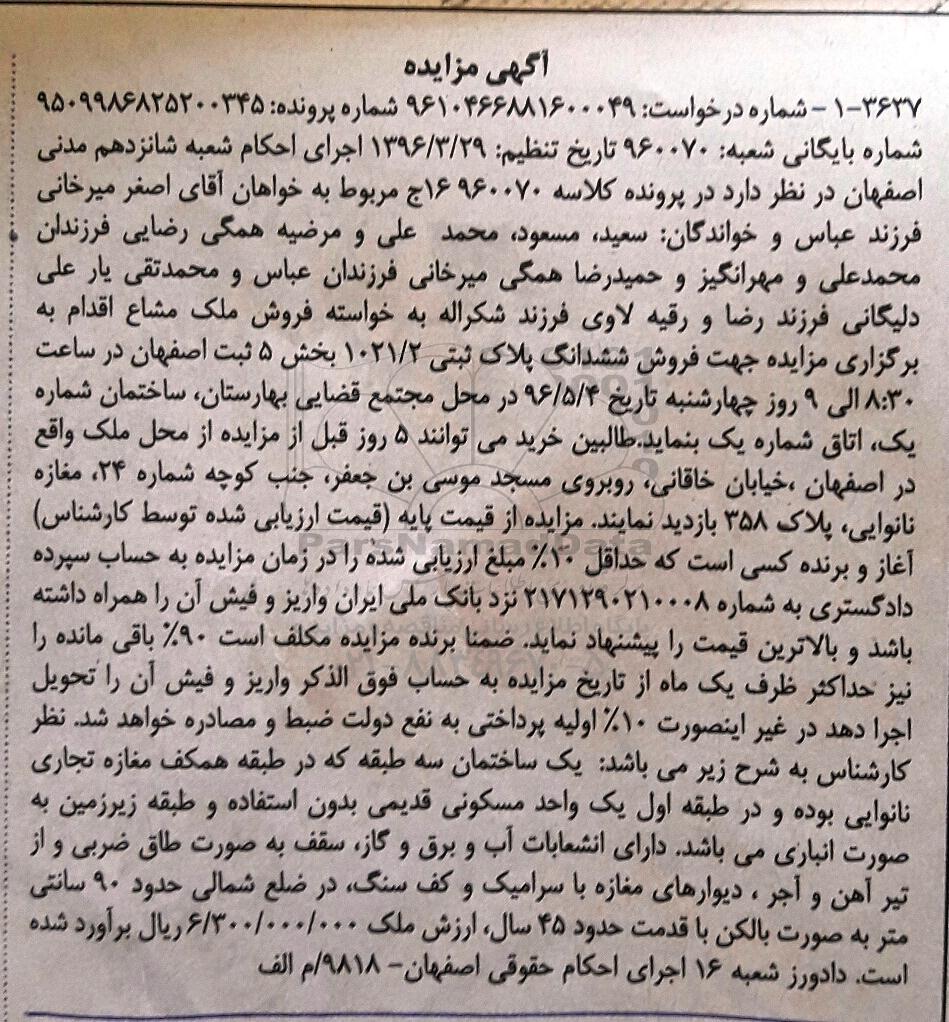 آگهی مزایده
۱-۳۶۳۷ - شماره درخواست: ۹۶۱۰۴۶۶۸۸۱۶۰۰۰۴۹ شماره پرونده: ۹۵۰۹۹۸۶۸۲۵۲۰۰۳۴۵
شماره بایگانی شعبه: ۹۶۰۰۷۰ تاریخ تنظیم: ۱۳۹۶/۳/۲۹ اجرای احکام شعبه شانزدهم مدنی
اصفهان در نظر دارد در پرونده کلاسه ۹۶۰۰۷۰ ۱۶ج مربوط به خواهان آقای اصغر میرخانی
فرزند عباس و خواندگان: سعید، مسعود، محمد علی و مرضیه همگی رضایی فرزندان
محمدعلی و مهرانگیز و حمیدرضا همگی میرخانی فرزندان عباس و محمدتقی یار علی
دلیگانی فرزند رضا و رقیه لاوی فرزند شکراله به خواسته فروش ملک مشاع اقدام به
برگزاری مزایده جهت فروش ششدانگ پلاک ثبتی ۱۰۲۱/۲ بخش ۵ ثبت اصفهان در ساعت
۸:۳۰ الی ۹ روز چهارشنبه تاریخ ۹۶/۵/۴ در محل مجتمع قضایی بهارستان، ساختمان شماره
یک، اتاق شماره یک بنماید.طالبین خرید می توانند ۵ روز قبل از مزایده از محل ملک واقع
در اصفهان ،خیابان خاقانی، روبروی مسجد موسی بن جعفر، جنب کوچه شماره ۲۴، مغازه
نانوایی، پلاک ۳۵۸ بازدید نمایند. مزایده از قیمت پایه (قیمت ارزیابی شده توسط کارشناس)
آغاز و برنده کسی است که حداقل ۱۰٪ مبلغ ارزیابی شده را در زمان مزایده به حساب سپرده
دادگستری به شماره ۲۱۷۱۲۹۰۲۱۰۰۰۸ نزد بانک ملی ایران واریز و فیش آن را همراه داشته
باشد و بالاترین قیمت را پیشنهاد نماید. ضمنا برنده مزایده مکلف است ۹۰٪ باقی مانده را
نیز حداکثر ظرف یک ماه از تاریخ مزایده به حساب فوق الذکر واریز و فیش آن را تحویل
اجرا دهد در غیر اینصورت ۱۰٪ اولیه پرداختی به نفع دولت ضبط و مصادره خواهد شد. نظر
کارشناس به شرح زیر می باشد: یک ساختمان سه طبقه که در طبقه همکف مغازه تجاری
نانوایی بوده و در طبقه اول یک واحد مسکونی قدیمی بدون استفاده و طبقه زیرزمین به
صورت انباری می باشد. دارای انشعابات آب و برق و گاز، سقف به صورت طاق ضربی و از
تیر آهن و آجر ، دیوارهای مغازه با سرامیک و کف سنگ، در ضلع شمالی حدود ۹۰ سانتی
متر به صورت بالکن با قدمت حدود ۴۵ سال، ارزش ملک ۶/۳۰۰/۰۰۰/۰۰۰ ریال برآورد شده
است. دادورز شعبه ۱۶ اجرای احکام حقوقی اصفهان- ۹۸۱۸/م الف
ParsNamadData